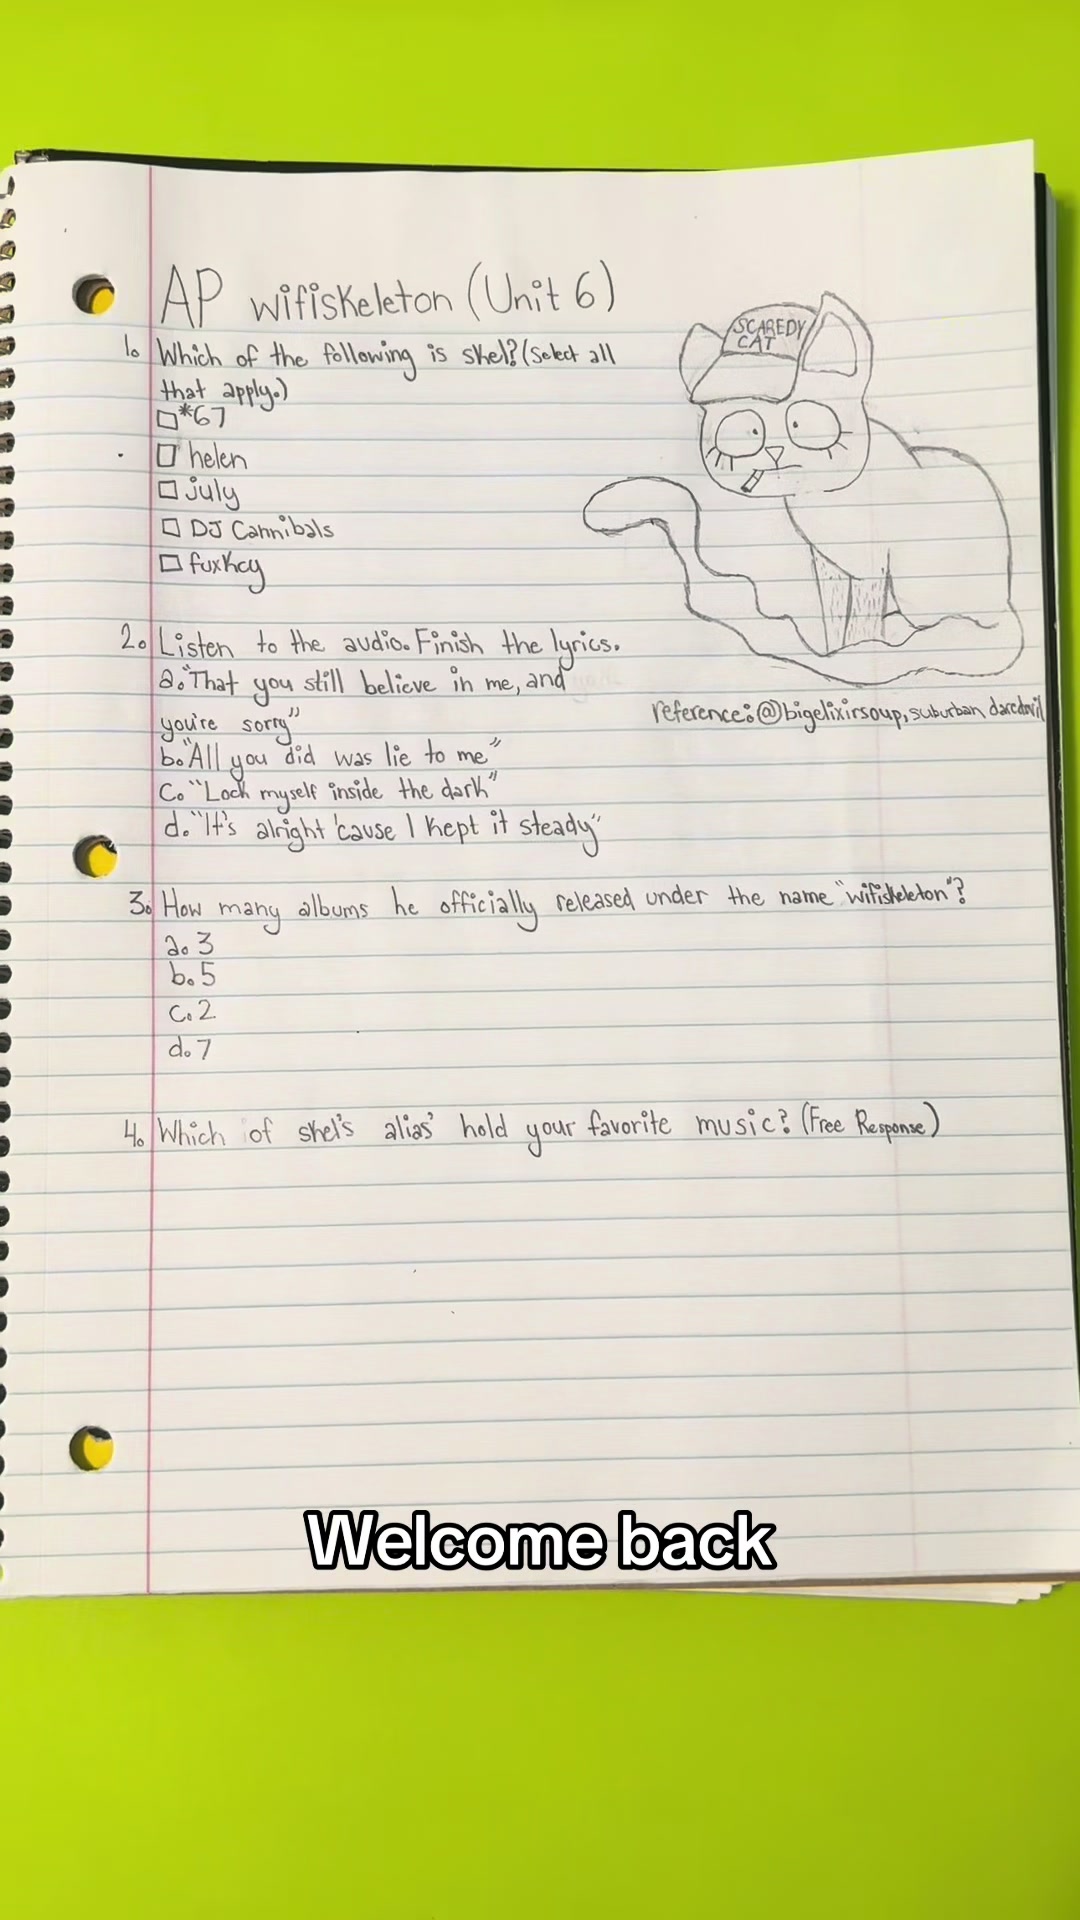 AP wifiskeleton (Unit 6)
1. Which of the following is skel? (Select all
that apply.)
*67
helen
july
DJ Cannibals
fuxkcy
SCAREDY
CAT
2. Listen to the audio. Finish the lyrics.
a. "That you still believe in me, and
you're sorry"
b. "All you did was lie to me"
c. "Lock myself inside the dark"
d. "It's alright 'cause I kept it steady"
reference: @bigelixirsoup, suburban daredevil
3. How many albums he officially released under the name "wifiskeleton"?
a. 3
b. 5
c. 2
d. 7
4. Which of skel's alias' hold your favorite music? (Free Response)
Welcome back